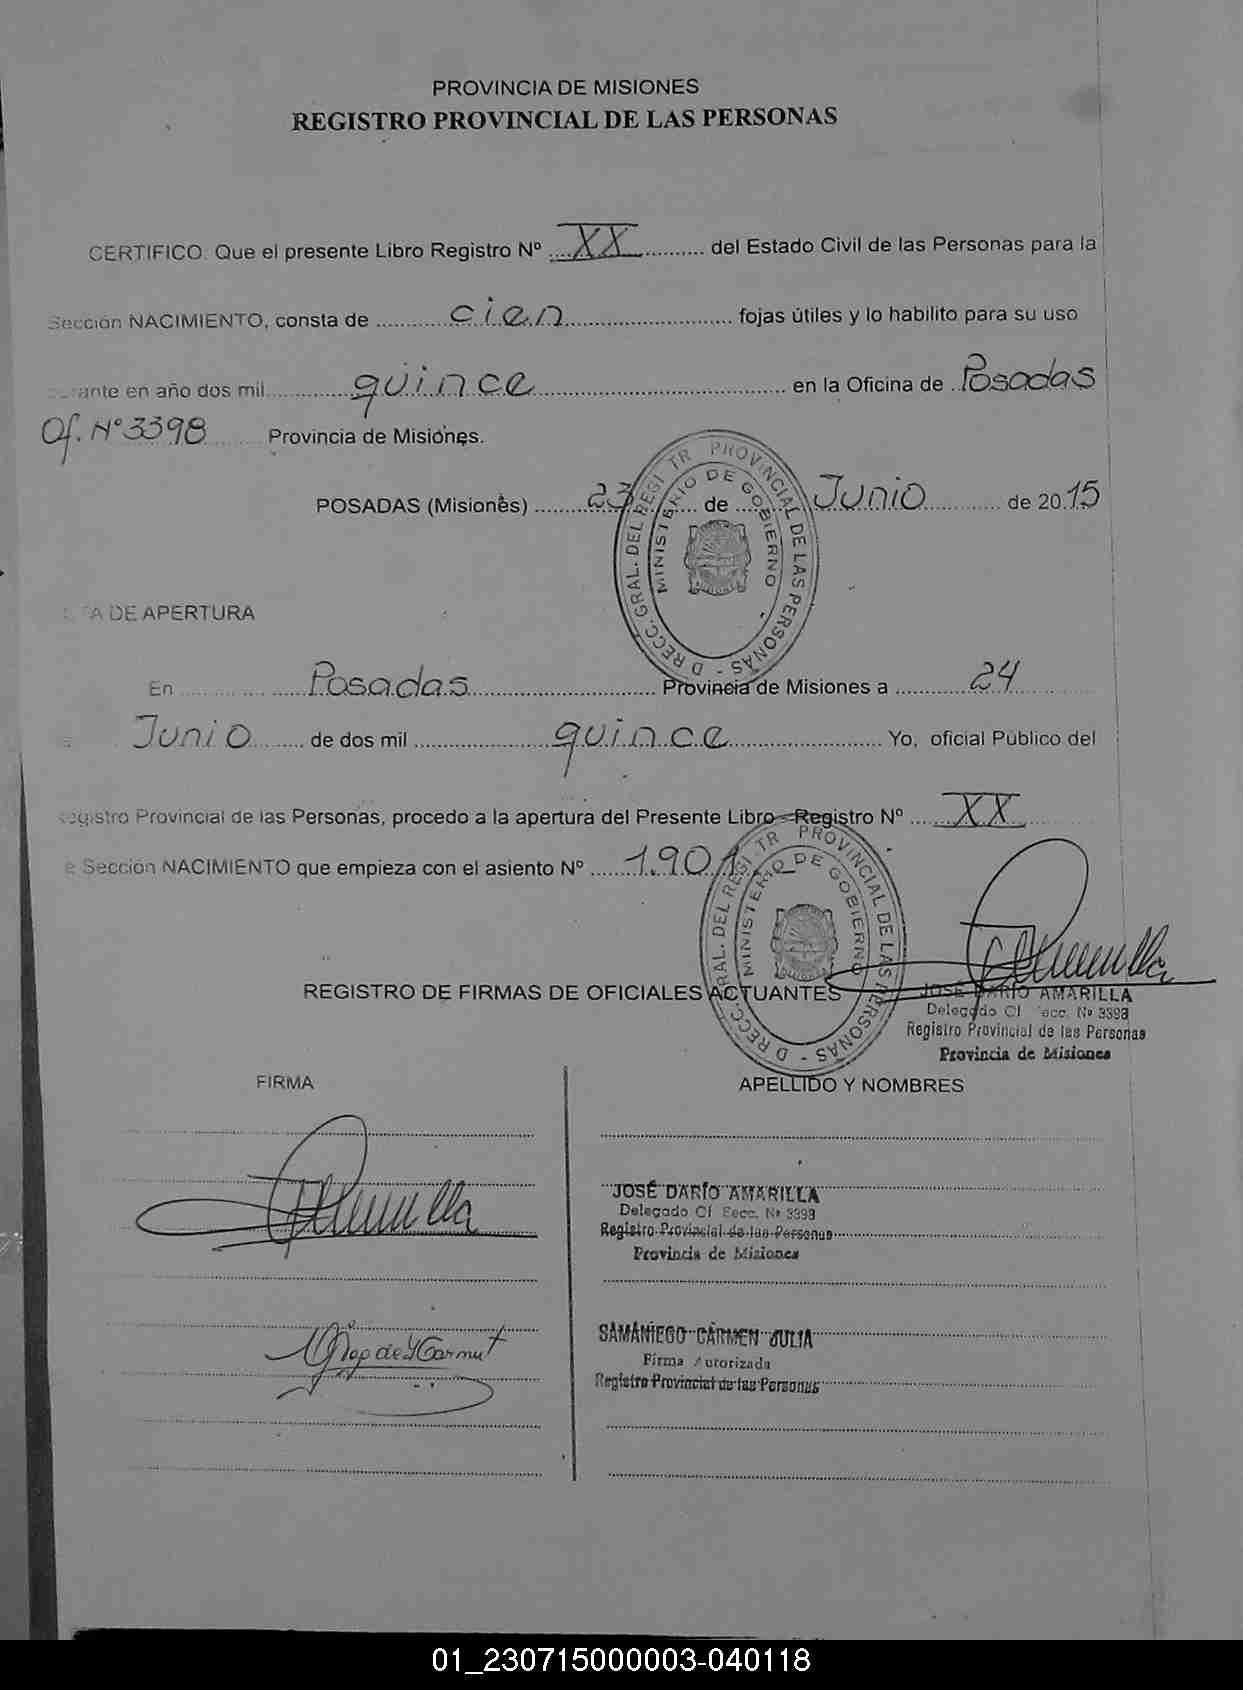 PROVINCIA DE MISIONES
REGISTRO PROVINCIAL DE LAS PERSONAS
CERTIFICO: Que el presente Libro Registro Nº XX del Estado Civil de las Personas para la
Sección NACIMIENTO, consta de cien fojas útiles y lo habilito para su uso
ante en año dos mil quince en la Oficina de Posadas
Of. Nº 3398 Provincia de Misiones.
POSADAS (Misiones) 23 de Junio de 2015
DIRECC. GRAL. DEL REGISTR PROVINCIAL DE LAS PERSONAS
MINISTERIO DE GOBIERNO
TA DE APERTURA
En Posadas Provincia de Misiones a 24
Junio de dos mil quince Yo, oficial Público del
egistro Provincial de las Personas, procedo a la apertura del Presente Libro Registro Nº XX
e Sección NACIMIENTO que empieza con el asiento Nº 1.901
DIRECC. GRAL. DEL REGISTR PROVINCIAL DE LAS PERSONAS
MINISTERIO DE GOBIERNO
REGISTRO DE FIRMAS DE OFICIALES ACTUANTES
JOSÉ DARÍO AMARILLA
Delegado Of Secc. Nº 3398
Registro Provincial de las Personas
Provincia de Misiones
FIRMA APELLIDO Y NOMBRES
JOSÉ DARÍO AMARILLA
Delegado Of Secc. Nº 3398
Registro Provincial de las Personas
Provincia de Misiones
SAMANIEGO CARMEN JULIA
Firma Autorizada
Registro Provincial de las Personas
01_230715000003-040118